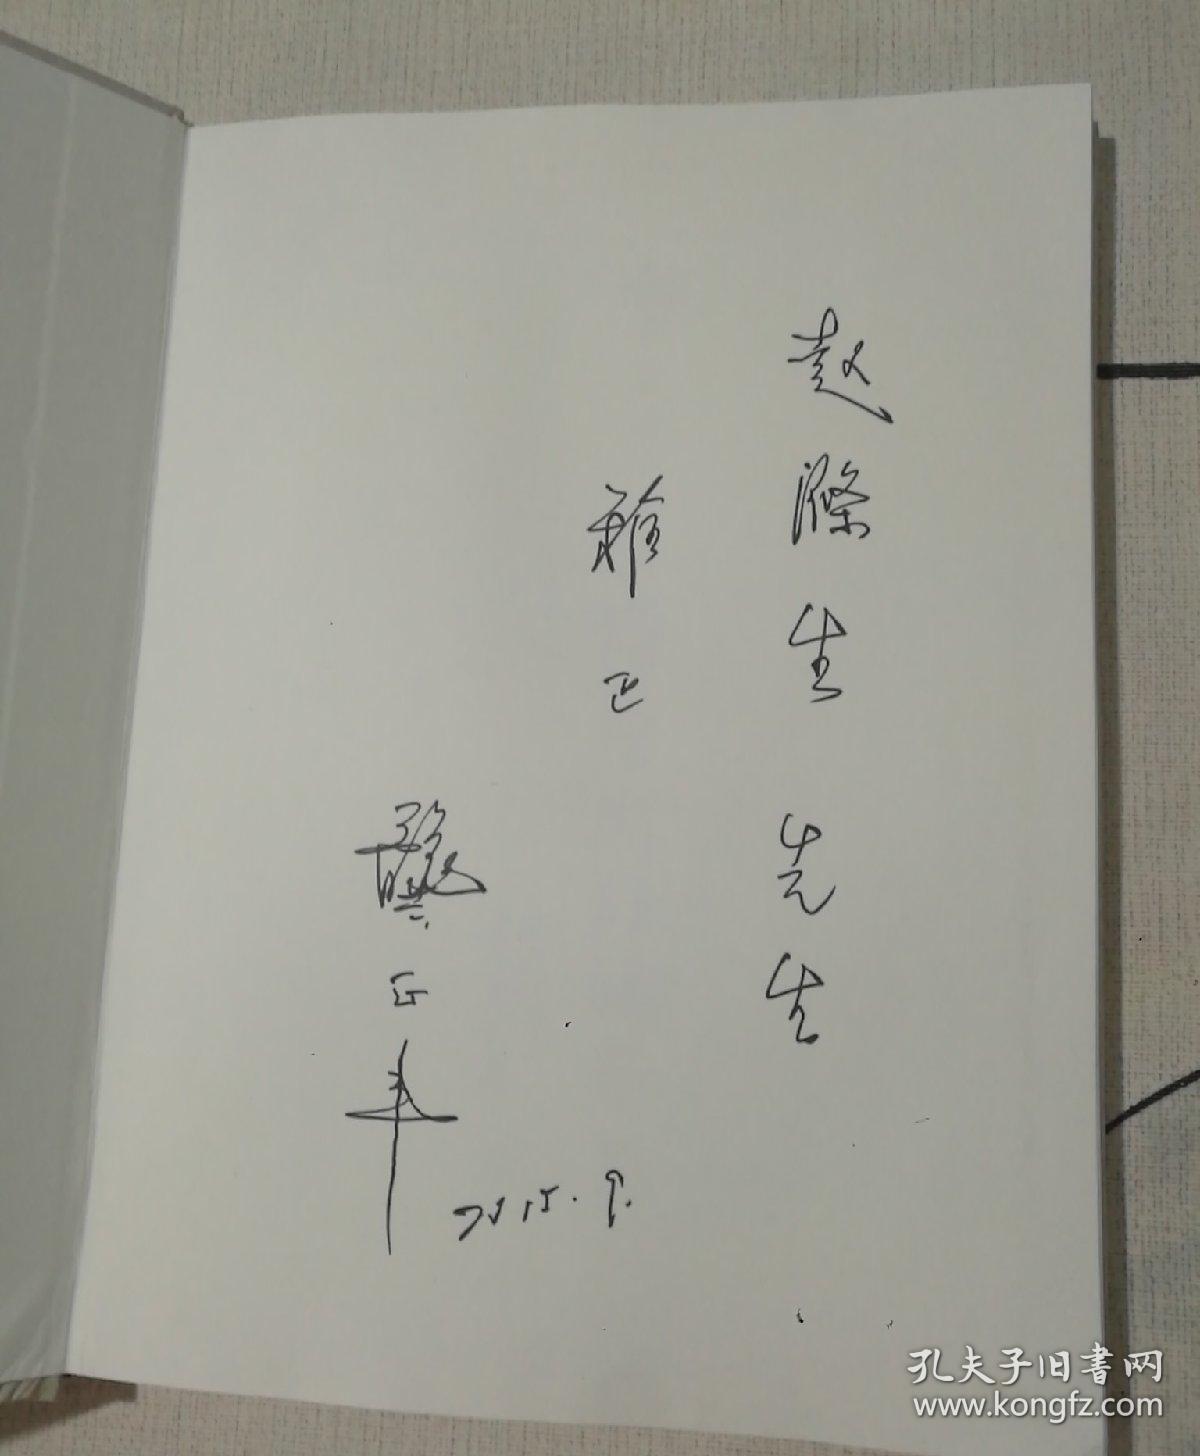 赵滌生先生
雅正
蔡正平
2015.9.
孔夫子旧书网
www.kongfz.com